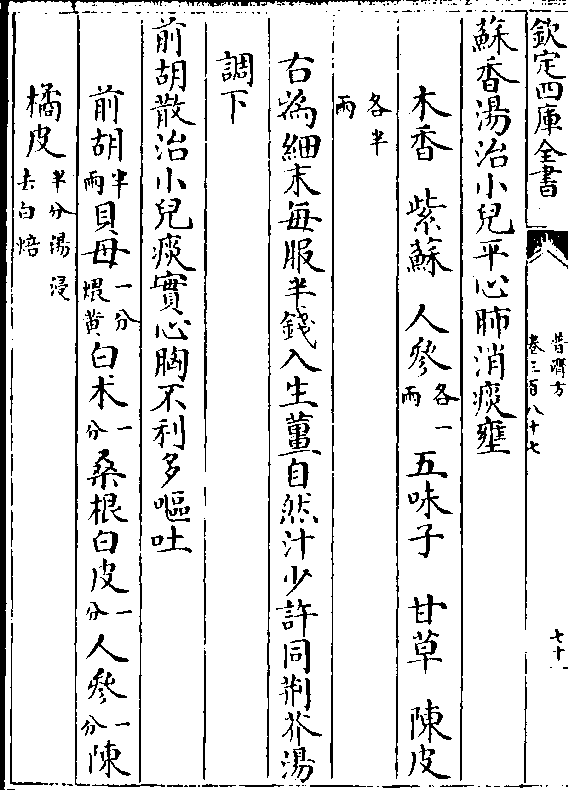 欽定四庫全書
普濟方
卷三百八十七
七十
蘇香湯治小兒平心肺消痰壅
木香 紫蘇 人參各一兩 五味子 甘草 陳皮
各半兩
右為細末每服半錢入生薑自然汁少許同荆芥湯
調下
前胡散治小兒痰實心胸不利多嘔吐
前胡半兩貝母一分煨黄白术一分桑根白皮一分人參一分陳
橘皮半分湯浸去白焙